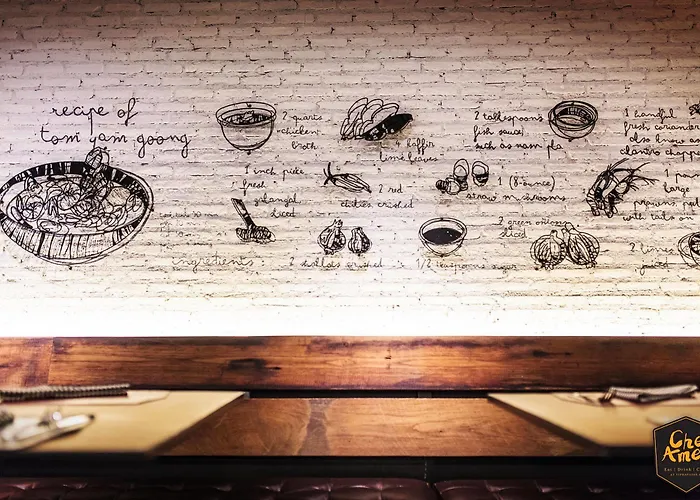 recipe of
tom yam goong
2 quarts
chicken
broth
4 kaffir
lime leaves
2 tablespoons
fish sauce
such as nam pla
1 handful
fresh
also know as
1 inch piece
fresh
galangal
sliced
2 red
chilies crushed
1 (8-ounce)
straw mushrooms
large
prawns
with tails on
2 green onions
sliced
ingredients
2 shallots crushed
1/2 teaspoons sugar
2 limes
juiced
Eat | Drink